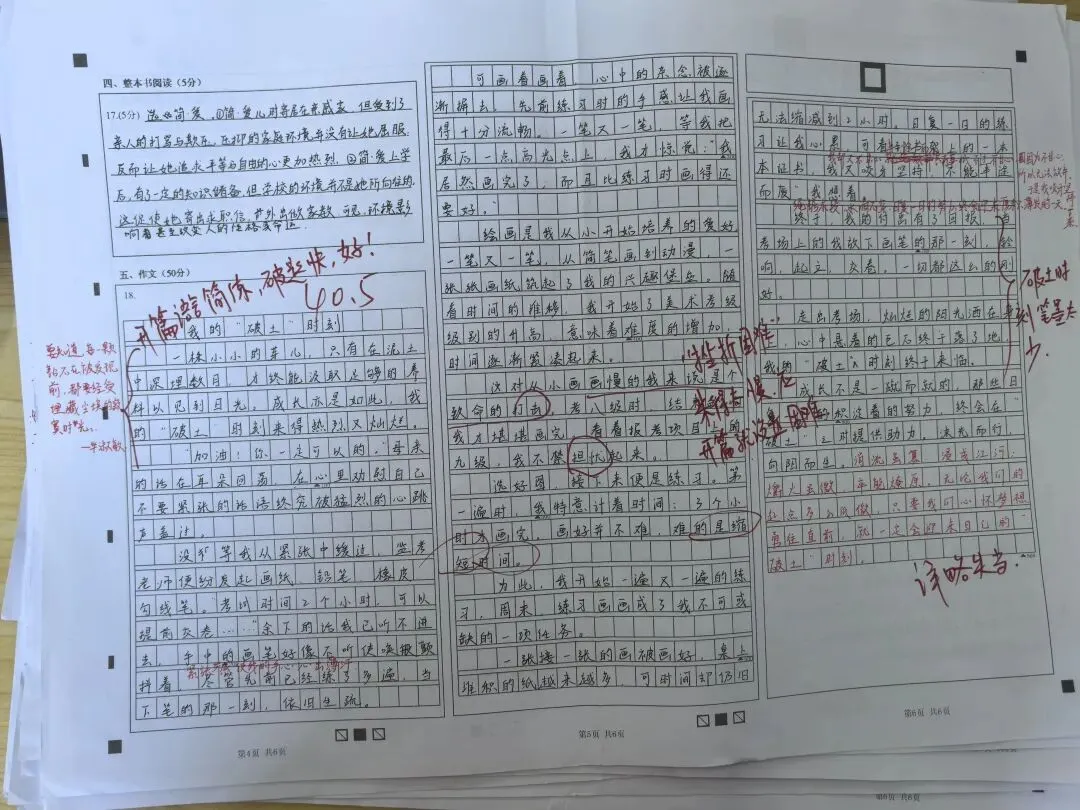 四、整本书阅读（5分）
17.(5分) 选《简·爱》①简·爱儿时寄居在亲戚家，但受到了
亲人的打骂与欺压，压抑的家庭环境并没有让她屈服，
反而让她追求平等与自由的心更加热烈。②简·爱上学
后，有了一定的知识储备，但学校的环境并不是她所向往的，
这促使她寄出求职信，外出做家教。可见，环境影
响着甚至改变人的性格或命运。
五、作文（50分）
18.
开篇语言简练，破题快，好！
40.5
我的“破土”时刻
一株小小的芽儿，只有在泥土
中深埋数月，才终能汲取足够的养
料以见到日光。成长亦是如此，我
的“破土”时刻来得热烈又灿烂。
“加油！你一定可以的。”母亲
的话在耳朵回荡，在心里劝慰自己
不要紧张的话语终究被猛烈的心跳
声盖过。
没等我从紧张中缓过，监考
老师便纷发起画纸、铅笔、橡皮、
勾线笔。“考试时间2个小时，可以
提前交卷……”余下的话我已听不进
去，手中的画笔好像不听使唤般颤
抖着，尽管先前已经练了多遍，当
下笔的那一刻，依旧生疏。
要知道，每一颗
钻石在被发现
前，都要经受
埋藏尘埃的寂
寞时光。
第4页 共6页
可画着画着，心中的杂念被逐
渐摒去，先前练习时的手感让我画
得十分流畅。一笔又一笔，等我把
最后一点高光点上，我才惊觉：“我
居然画完了，而且比练习时画得还
要好。”
绘画是我从小开始培养的爱好，
一笔又一笔，从简笔画到动漫，一
张张画纸筑起了我的兴趣堡垒。随
着时间的推移，我开始了美术考级，
级别的升高，意味着难度的增加，
时间逐渐紧凑起来。
这对从小画画慢的我来说是个
致命的打击。考八级时，结
我才堪堪画完，看着报考项目上的
九级，我不禁担忧起来。
选好图，接下来便是练习。第
一遍时，我特意计着时间：3个小
时才画完，画好并不难，难的是缩
短时间。
为此，我开始一遍又一遍的练
习，周末，练习画画成了我不可或
缺的一项任务。
一张接一张的画被画好，桌上
堆积的纸越来越多，可时间却仍旧
“挫折困难”
来得太慢，应
开篇就设置困难
第5页 共6页
无法缩减到2小时。日复一日的练
习让我心累，可看
本证书，我又咬牙坚持：“不能半途
而废”我想着。
终于，我的付出有了回报，当
考场上的我放下画笔的那一刻，铃
响，起立，交卷，一切都这么的刚
好。
走出考场，灿烂的阳光洒在身
，心中悬着的巨石终于落了地，
我的“破土”时刻终于来临。
成长不是一蹴而就的，那些日
积淀着的努力，终会在“
破土”之时提供助力。逐光而行，
向阳而生。涓流虽寡，浸成江河；
爝火虽微，卒能燎原。无论我们的
起点多么低微，只要我们心怀梦想
勇往直前，就一定会迎来自己的“
破土”时刻。
破土时
刻笔墨太
少。
详略失当。
第6页 共6页